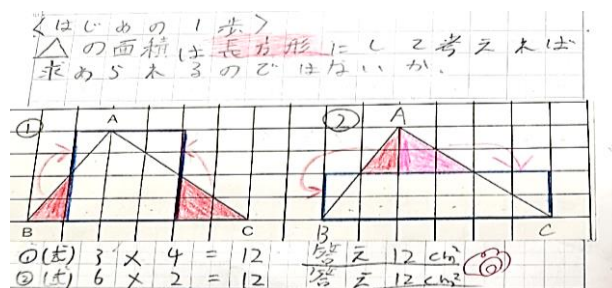 ＜はじめの1歩＞
△の面積は長方形にして考えれば
求められるのではないか。
① A
B C
② A
B C
①(式) 3 × 4 = 12 答え 12 cm²
②(式) 6 × 2 = 12 答え 12 cm²